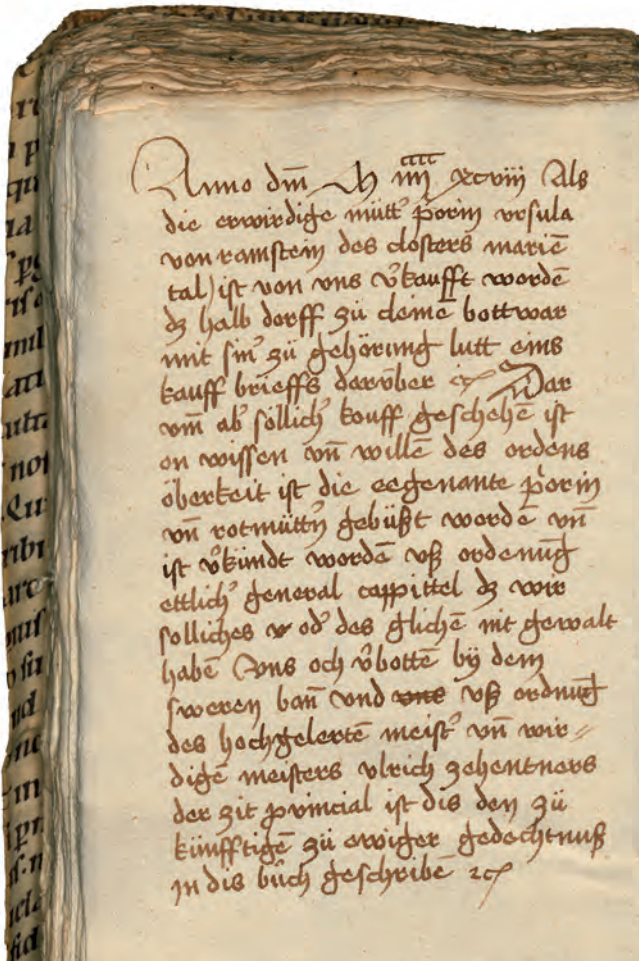 Anno dm̄ M iiii cccc xcviii Als
die erwirdige mütt' p̄orin vrsula
von ramstein des closters mariē
tal ist von vns v̓kaufft wordē
dz halb dorff zü cleinē bottwar
mit sin' zü gehörung lutt eins
kauff brieffs darv̈ber ꝛc Dar
vm̄ ab' söllich' kouff geschehē ist
on wissen vn̄ willē des ordens
öberkeit ist die eegenante p̄orin
vn̄ rotmüttn̄ gebüßt wordē vn̄
ist v̓kündt wordē vß ordenūg
ettlich' general cappittel dz wir
solliches od' des glichē nit gewalt
habē Vns och v̓bottē bÿ dem
sweren ban̄ vnd vns vß ordnūg
des hochgelertē meist' vn̄ wir⸗
digē meisters vlrich zehentners
der zit ꝓuincial ist dis den zü
künfftigē zü ewiger gedechtnuß
in dis büch geschribē ꝛc